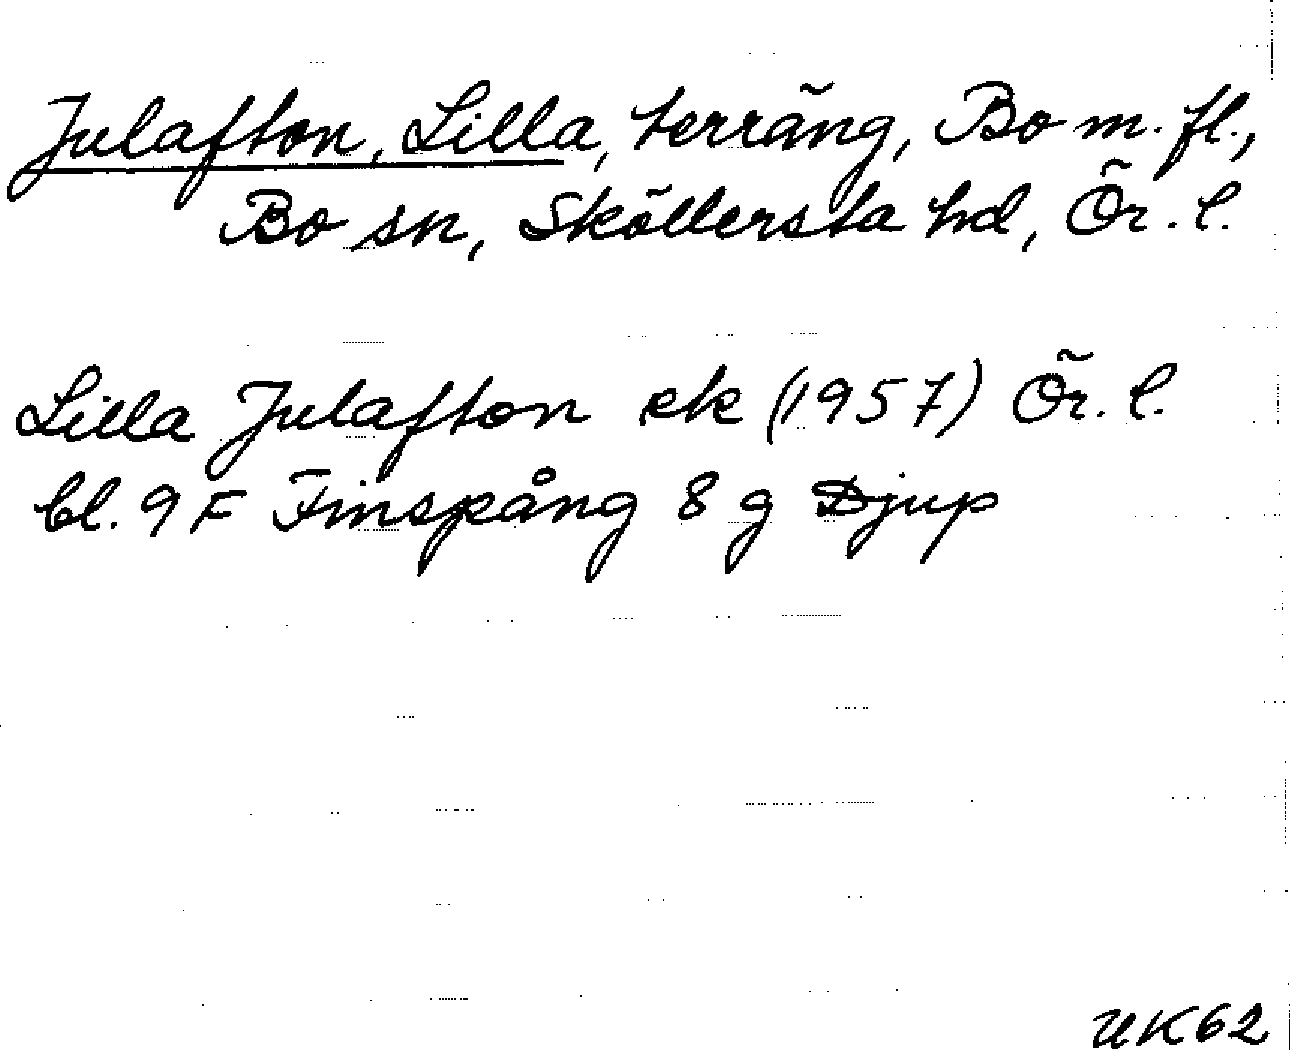 Julafton, Lilla, terräng, Bo m. fl.,
Bo sn, Sköllersta hd, Ör. l.
Lilla Julafton ek (1957) Ör. l.
bl. 9 F Finspång 8 g Djup
UK62